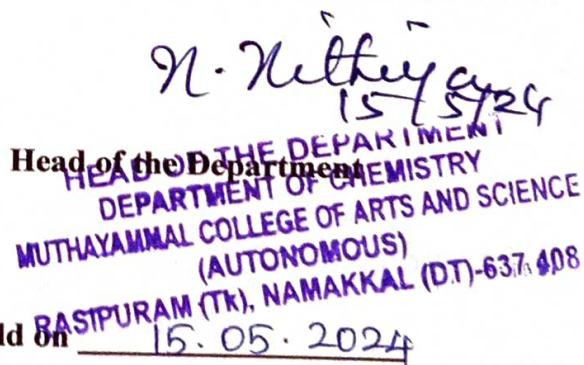 N. Nithiya
15/5/24
Head of the Department
HEAD OF THE DEPARTMENT
DEPARTMENT OF CHEMISTRY
MUTHAYAMMAL COLLEGE OF ARTS AND SCIENCE
(AUTONOMOUS)
RASIPURAM (Tk), NAMAKKAL (D.T)-637 408
ld on 15.05.2024